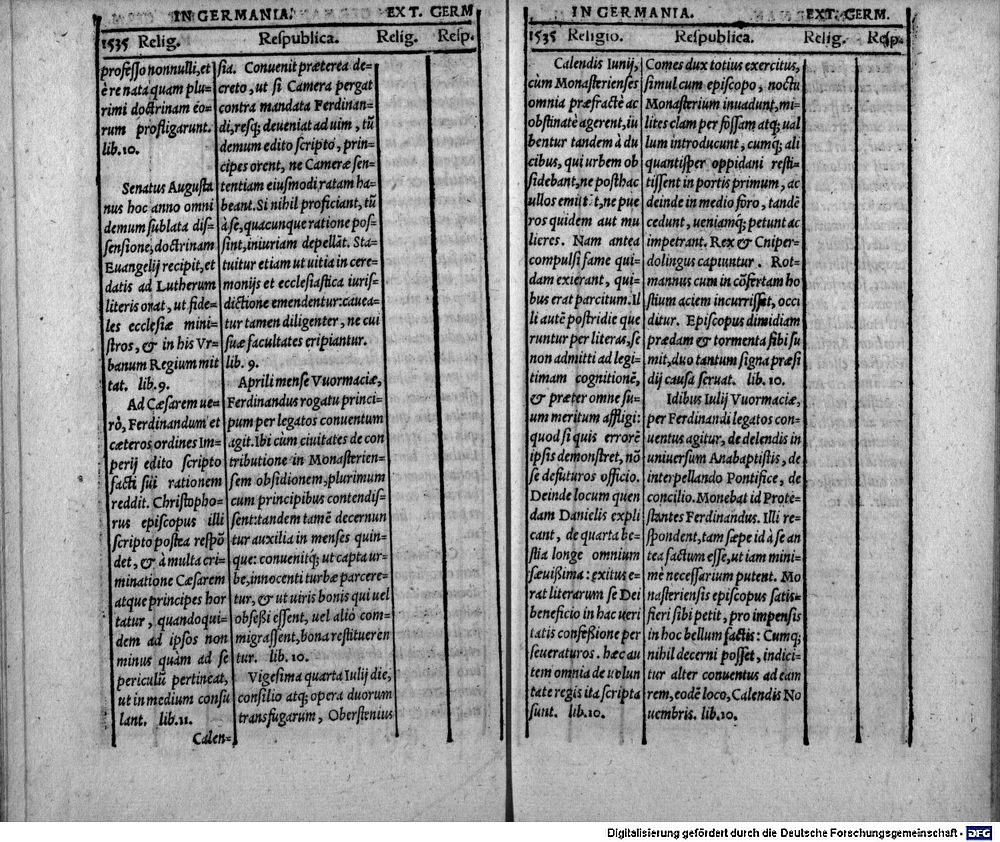 IN GERMANIA. EXT. GERM
1535 Relig. Respublica. Relig. Resp.
professo nonnulli, et
è re nata quam plu-
rimi doctrinam eo-
rum profligarunt.
lib. 10.
Senatus Augusta
nus hoc anno omni
demum sublata dis-
sensione, doctrinam
Euangelij recipit, et
datis ad Lutherum
literis orat, ut fide-
les ecclesiæ mini-
stros, & in his Vr-
banum Regium mit
tat. lib. 9.
Ad Cæsarem ue-
rò, Ferdinandum et
cæteros ordines Im-
perij edito scripto
facti sui rationem
reddit. Christopho-
rus episcopus illi
scripto postea respõ
det, & à multa cri-
minatione Cæsarem
atque principes hor
tatur, quandoqui-
dem ad ipsos non
minus quàm ad se
periculũ pertineat,
ut in medium consu
lant. lib. 11.
sia. Conuenit præterea de-
creto, ut si Camera pergat
contra mandata Ferdinan-
di, resq; deueniat ad uim, tũ
demum edito scripto, prin-
cipes orent, ne Cameræ sen-
tentiam eiusmodi, ratam ha-
beant. Si nihil proficiant, tũ
à se, quacunque ratione pos-
sint, iniuriam depellãt. Sta-
tuitur etiam ut uitia in cere-
monijs et ecclesiastica iuris-
dictione emendentur: cauea-
tur tamen diligenter, ne cui
suæ facultates eripiantur.
lib. 9.
Aprili mense Vuormaciæ,
Ferdinandus rogatu princi-
pium per legatos conuentum
agit. Ibi cùm ciuitates de con
tributione in Monasterien-
sem obsidionem, plurimum
cum principibus contendis-
sent: tandem tamẽ decernun
tur auxilia in menses quin-
que: conuenitq; ut capta ur-
be, innocenti turbæ parcere-
tur, & ut uiris bonis qui uel
obseßi essent, uel aliò com-
migrassent, bona restituerẽn
tur. lib. 10.
Vigesima quarta Iulij die,
consilio atq; opera duorum
transfugarum, Oberstenius
Calen-
IN GERMANIA. EXT. GERM.
1535 Religio. Respublica. Relig. Resp.
Calendis Iunij,
cùm Monasterienses
omnia præfractè ac
obstinatè agerent, iu
bentur tandem à du
cibus, qui urbem ob
sidebant, ne posthac
ullos emittãt, ne pue
ros quidem aut mu
lieres. Nam antea
compulsi fame qui-
dam exierant, qui-
bus erat parcitum. Il
li autẽ postridie que
runtur per literas, se
non admitti ad legi-
timam cognitionẽ,
& præter omne su-
um meritum affligi:
quod si quis errorẽ
ipsis demonstret, nõ
se defuturos officio.
Deinde locum quen
dam Danielis expli
cant, de quarta be-
stia longe omnium
sæuißima: exitus e-
rat literarum se Dei
beneficio in hac ueri
tatis confeßione per
seueraturos. hæc au
tem omnia de uolun
tate regis ita scripta
sunt. lib. 10.
Comes dux totius exercitus,
simul cum episcopo, noctu
Monasterium inuadunt, mi-
lites clam per fossam atq; ual
lum introducunt, cumq; ali
quantisper oppidani resti-
tissent in portis primum, ac
deinde in medio foro, tandẽ
cedunt, ueniamq; petunt ac
impetrant. Rex & Cniper-
dolingus capiuntur. Rot-
mannus cum in cõfertam ho
stium aciem incurrisset, occi
ditur. Episcopus dimidiam
prædam & tormenta sibi su
mit, duo tantum signa præsi
dij causa seruat. lib. 10.
Idibus Iulij Vuormaciæ,
per Ferdinandi legatos con-
uentus agitur, de delendis in
uniuersum Anabaptistis, de
interpellando Pontifice, de
concilio. Monebat id Prote-
stantes Ferdinandus. Illi re-
spondent, tam sæpe id à se an
tea factum esse, ut iam mini-
mè necessarium putent. Mo
nasteriensis episcopus satis-
fieri sibi petit, pro impensis
in hoc bellum factis: Cumq;
nihil decerni posset, indici-
tur alter conuentus ad eam
rem, eodẽ loco, Calendis No
uembris. lib. 10.
Digitalisierung gefördert durch die Deutsche Forschungsgemeinschaft - DFG